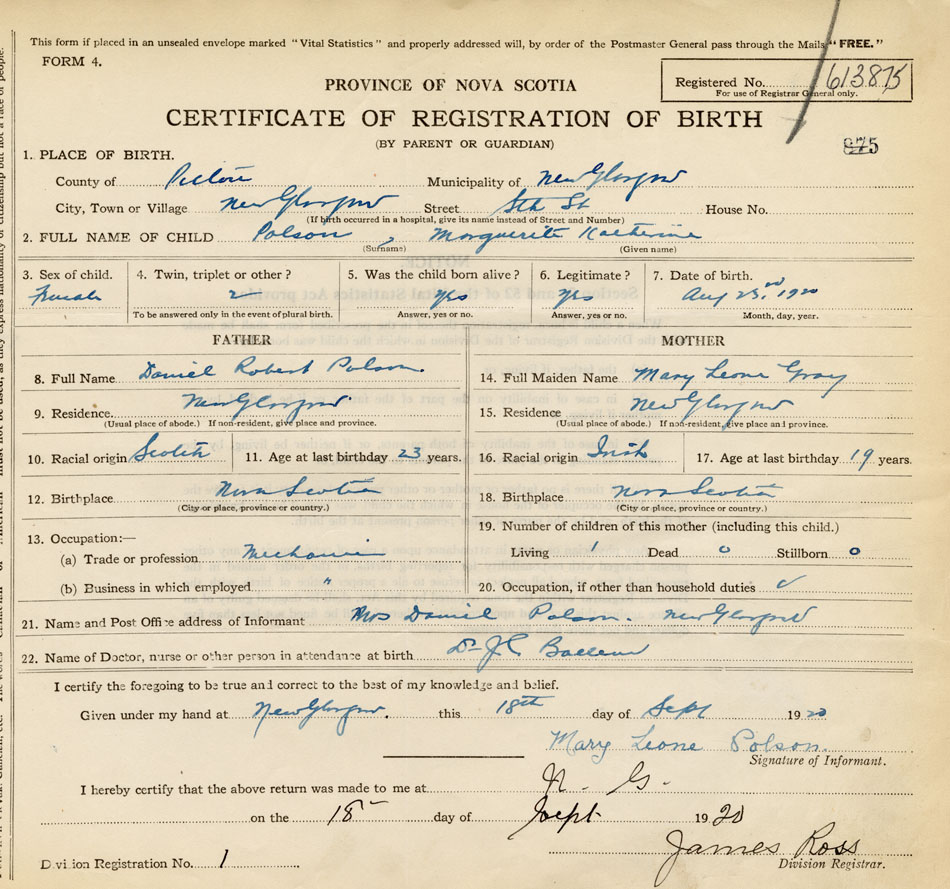 This form if placed in an unsealed envelope marked "Vital Statistics" and properly addressed will, by order of the Postmaster General pass through the Mails "FREE."
FORM 4.
PROVINCE OF NOVA SCOTIA
Registered No. 613875
For use of Registrar General only.
CERTIFICATE OF REGISTRATION OF BIRTH
(BY PARENT OR GUARDIAN)
875
1. PLACE OF BIRTH.
County of Pictou Municipality of New Glasgow
City, Town or Village New Glasgow Street St House No.
(If birth occurred in a hospital, give its name instead of Street and Number)
2. FULL NAME OF CHILD Polson, Marguerite Katherine
(Surname) (Given name)
3. Sex of child. 4. Twin, triplet or other? 5. Was the child born alive? 6. Legitimate? 7. Date of birth.
Female yes yes Aug 23rd, 1920
To be answered only in the event of plural birth. Answer, yes or no. Answer, yes or no. Month, day, year.
FATHER MOTHER
8. Full Name Daniel Robert Polson. 14. Full Maiden Name Mary Leone Gray
9. Residence. New Glasgow 15. Residence New Glasgow
(Usual place of abode.) If non-resident, give place and province. (Usual place of abode.) If non-resident, give place and province.
10. Racial origin Scotch 11. Age at last birthday 23 years. 16. Racial origin Irish 17. Age at last birthday 19 years.
12. Birthplace Nova Scotia 18. Birthplace Nova Scotia
(City or place, province or country.) (City or place, province or country.)
13. Occupation:— 19. Number of children of this mother (including this child.)
(a) Trade or profession Mechanic Living 1 Dead 0 Stillborn 0
(b) Business in which employed " 20. Occupation, if other than household duties ✓
21. Name and Post Office address of Informant Mrs Daniel Polson. New Glasgow
22. Name of Doctor, nurse or other person in attendance at birth Dr J C
I certify the foregoing to be true and correct to the best of my knowledge and belief.
Given under my hand at New Glasgow. this 18th day of Sept 1920
Mary Leone Polson.
Signature of Informant.
I hereby certify that the above return was made to me at N. G.
on the 18 day of Sept. 1920
James Ross
Division Registrar.
Division Registration No. 1